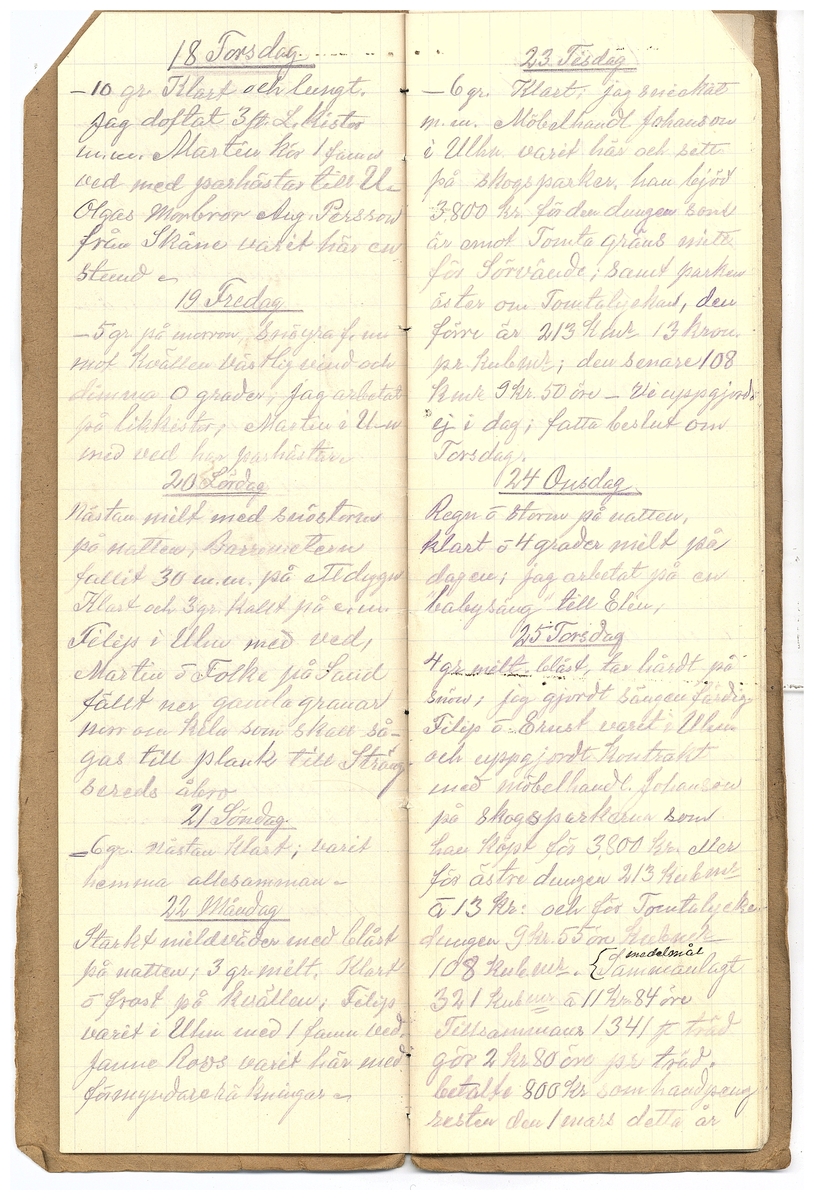 18 Torsdag.
-10 gr. Klart och lungt.
Jag doftat 3 st. L. kistor
m.m. Martin kör 1 famn
ved med parhästar till U-
Olgas Morbror Aug. Persson
från Skåne varit här en
stund -
19 Fredag.
-5 gr på morron, snöyra f.m
mot kvällen västlig vind och
dimma 0 grader; jag arbetat
på likkistor; Martin i U-n
med ved har parhästar.
20 Lördag.
Nästan milt med snöstorm
på natten; Barrometern
fallit 30 m.m. på ett dygn
Klart och 3 gr. kallt på e.m.
Filip i Ulhn med ved,
Martin ö Folke på Sand
fällt ner gamla granar
norr om hela som skall så-
gas till plank till Sträng-
sereds åbro
21 Söndag.
-6 gr. nästan klart; varit
hemma allesamman -
22 Måndag
Starkt mildväder med blåst
på natten; 3 gr. milt. Klart
ö frost på kvällen; Filip
varit i Ulhn med 1 famn ved.
Janne Roos varit här med
förmyndareräkningar -
23 Tisdag
-6 gr. Klart; jag snickat
m.m. Möbelhandl Johanson
i Ulhn. varit här och sett
på skogsparker, han bjöd
3.800 kr. för den dungen som
är emot Tomta gräns mitt
för Sörvände; samt parken
öster om Tomtalyckan, den
förre är 213 kmr 13 kron.
pr. kubmr; den senare 108
kmr 9 kr. 50 öre - Vi uppgjorde
ej i dag; fatta beslut om
Torsdag.
24 Onsdag
Regn ö storm på natten,
klart ö 4 grader milt på
dagen; jag arbetat på en
"babysäng" till Elin;
25 Torsdag
4 gr milt blåst, tar hårdt på
snön; jag gjordt sängen färdig
Filip ö Ernst varit i Ulhn
och uppgjordt Kontrakt
med möbelhandl. Johanson
på skogsparkerna som
han köpt för 3,800 kr. eller
för östre dungen 213 kubmr
à 13 kr: och för Tomtalycke-
dungen 9 kr. 55 öre kubmr
108 kubmr. { Sammanlagt medelmål
321 kubmr à 11 kr 84 öre
Tillsammans 1341 st träd
gör 2 kr 80 öre pr träd.
betalte 800 kr som handpeng
resten den 1 mars detta år